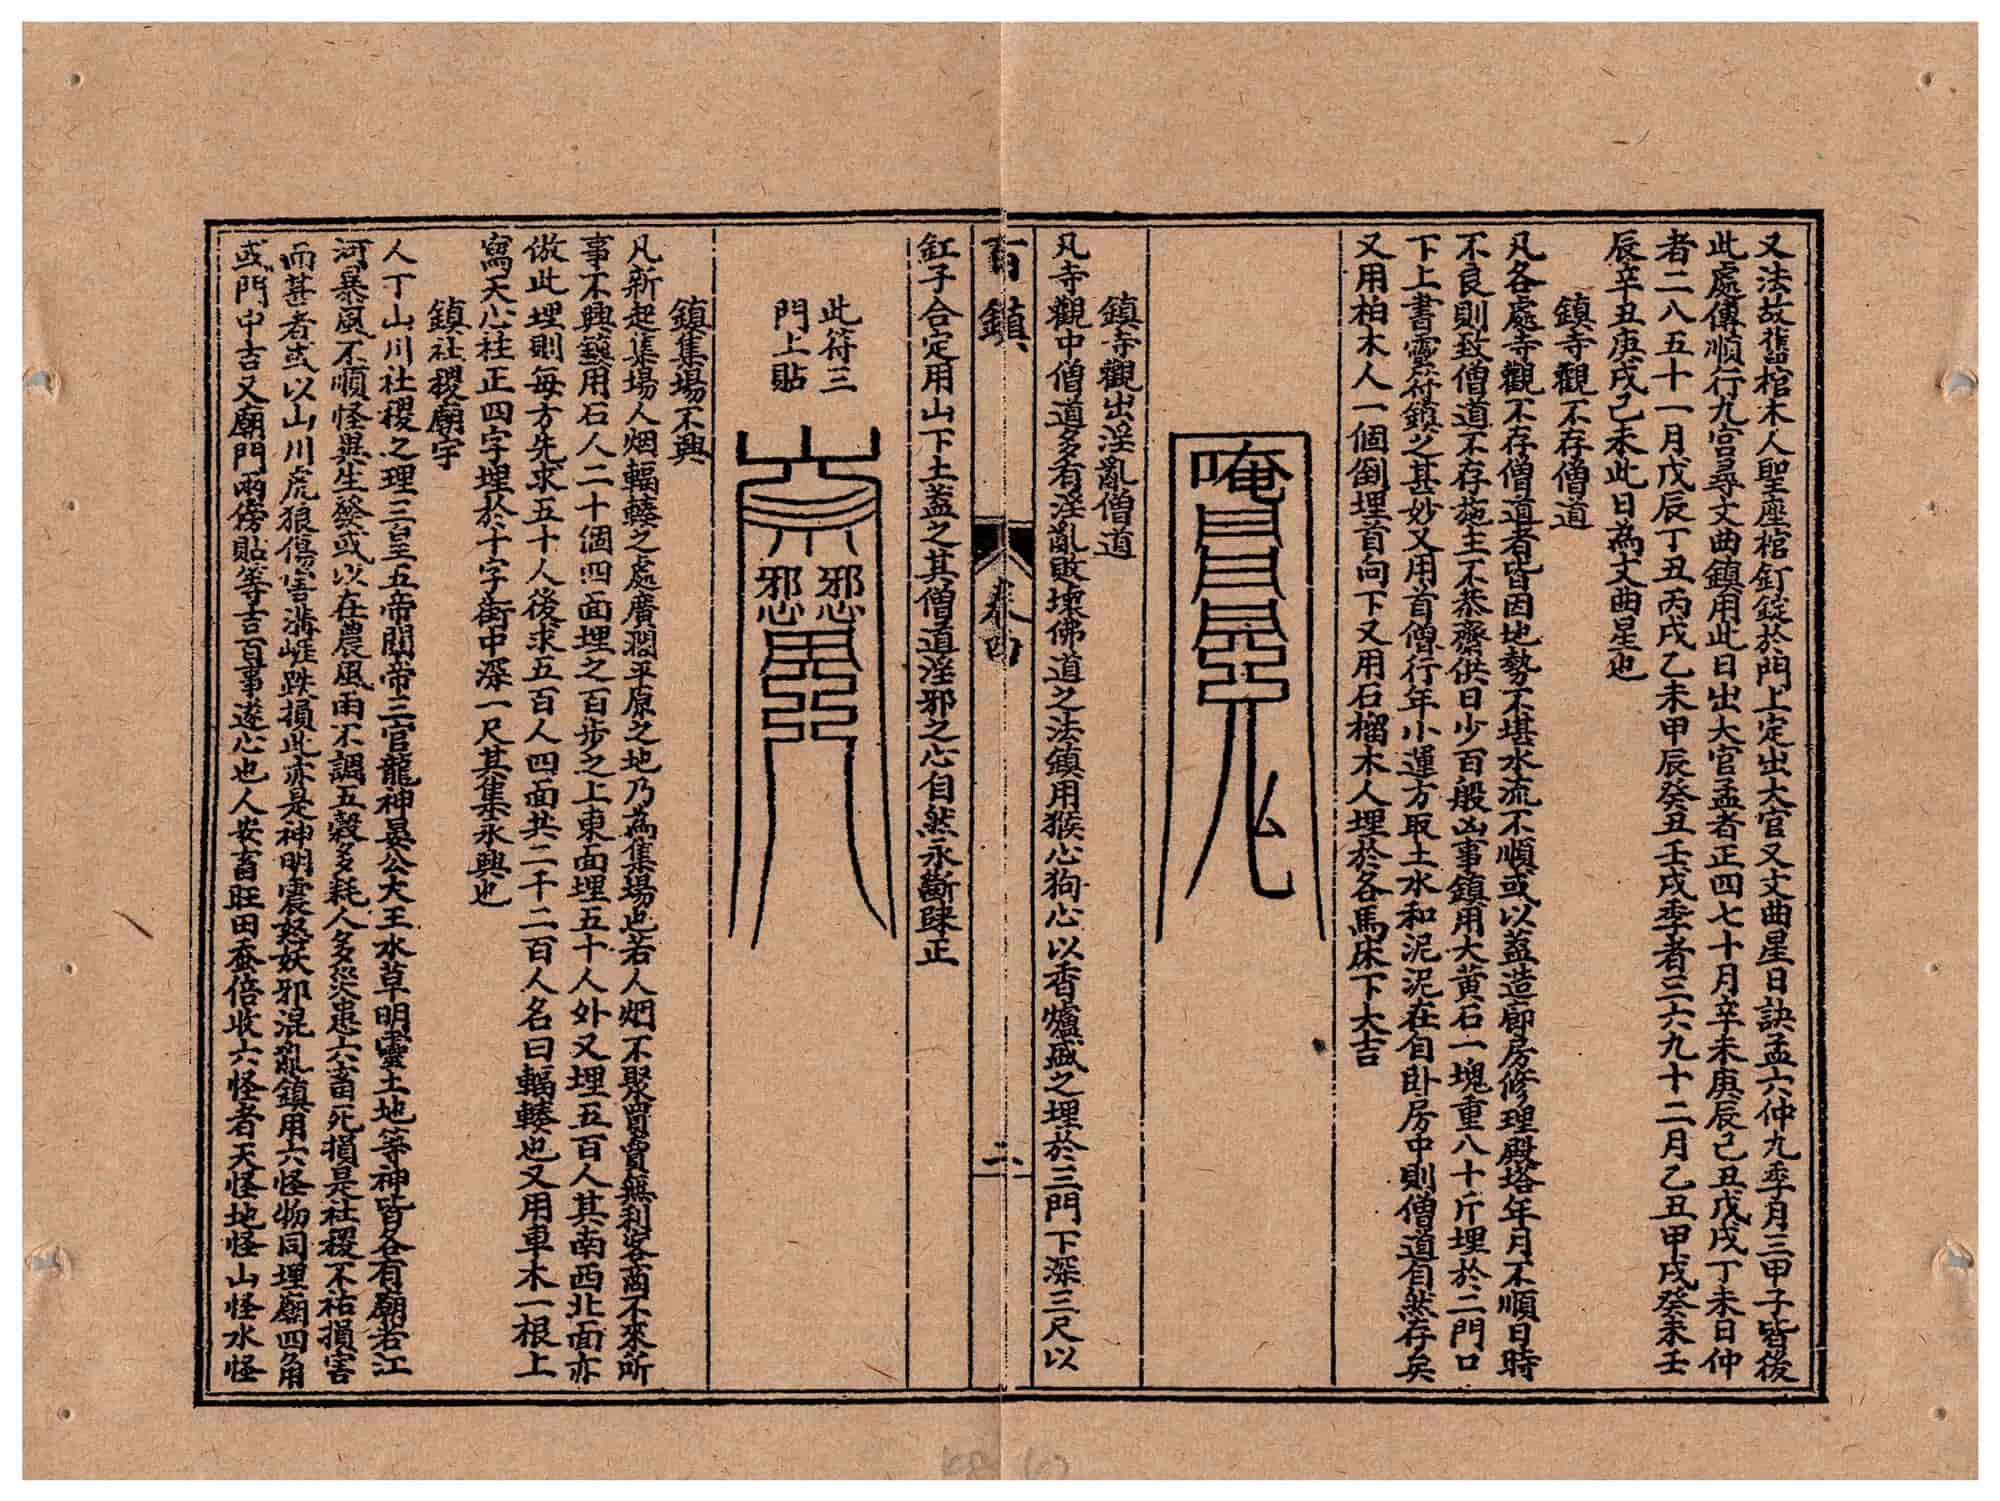 又法故舊棺木人聖座棺釘錠於門上定出大官又文曲星日訣孟六仲九季月三甲子皆後
此處傳順行九宮尋文曲鎮用此日出大官孟者正四七十月辛未庚辰己丑戊戌丁未日仲
者二八五十一月戊辰丁丑丙戌乙未甲辰癸丑壬戌季者三六九十二月乙丑甲戌癸未壬
辰辛丑庚戌己未此日為文曲星也
鎮寺觀不存僧道
凡各處寺觀不存僧道者皆因地勢不堪水流不順或以蓋造廊房修理殿塔年月不順日時
不良則致僧道不存施主不恭齋供日少百般凶事鎮用大黃石一塊重八十斤埋於二門口
下上書靈符鎮之甚妙又用首僧行年小運方取土水和泥泥在自卧房中則僧道自然存矣
又用柏木人一個倒埋首向下又用石榴木人埋於各馬床下大吉
唵
鎮寺觀出淫亂僧道
凡寺觀中僧道多有淫亂敗壞佛道之法鎮用猴心狗心以香爐盛之埋於三門下深三尺以
百鎮 卷四 二
缸子合定用山下土蓋之其僧道淫邪之心自然永斷歸正
此符三
門上貼
邪惡
邪惡
鎮集場不興
凡新起集場人烟輻輳之處廣濶平原之地乃為集場也若人烟不聚買賣無利客商不來所
事不興鎮用石人二十個四面埋之百步之上東面埋五十人外又埋五百人其南西北面亦
倣此埋則每方先求五十人後求五百人四面共二千二百人名曰輻輳也又用車木一根上
寫天心柱正四字埋於十字街中深一尺其集永興也
鎮社稷廟宇
人丁山川社稷之理三皇五帝關帝三官龍神晏公大王水草明靈土地等神皆各有廟若江
河暴風不順怪異生發或以在農風雨不調五穀多耗人多災患六畜死損是社稷不祐損害
而甚者或以山川虎狼傷害溝崖跌損此亦是神明震怒妖邪混亂鎮用六怪物同埋廟四角
或門中吉又廟門兩傍貼等吉百事遂心也人安畜旺田蚕倍收六怪者天怪地怪山怪水怪